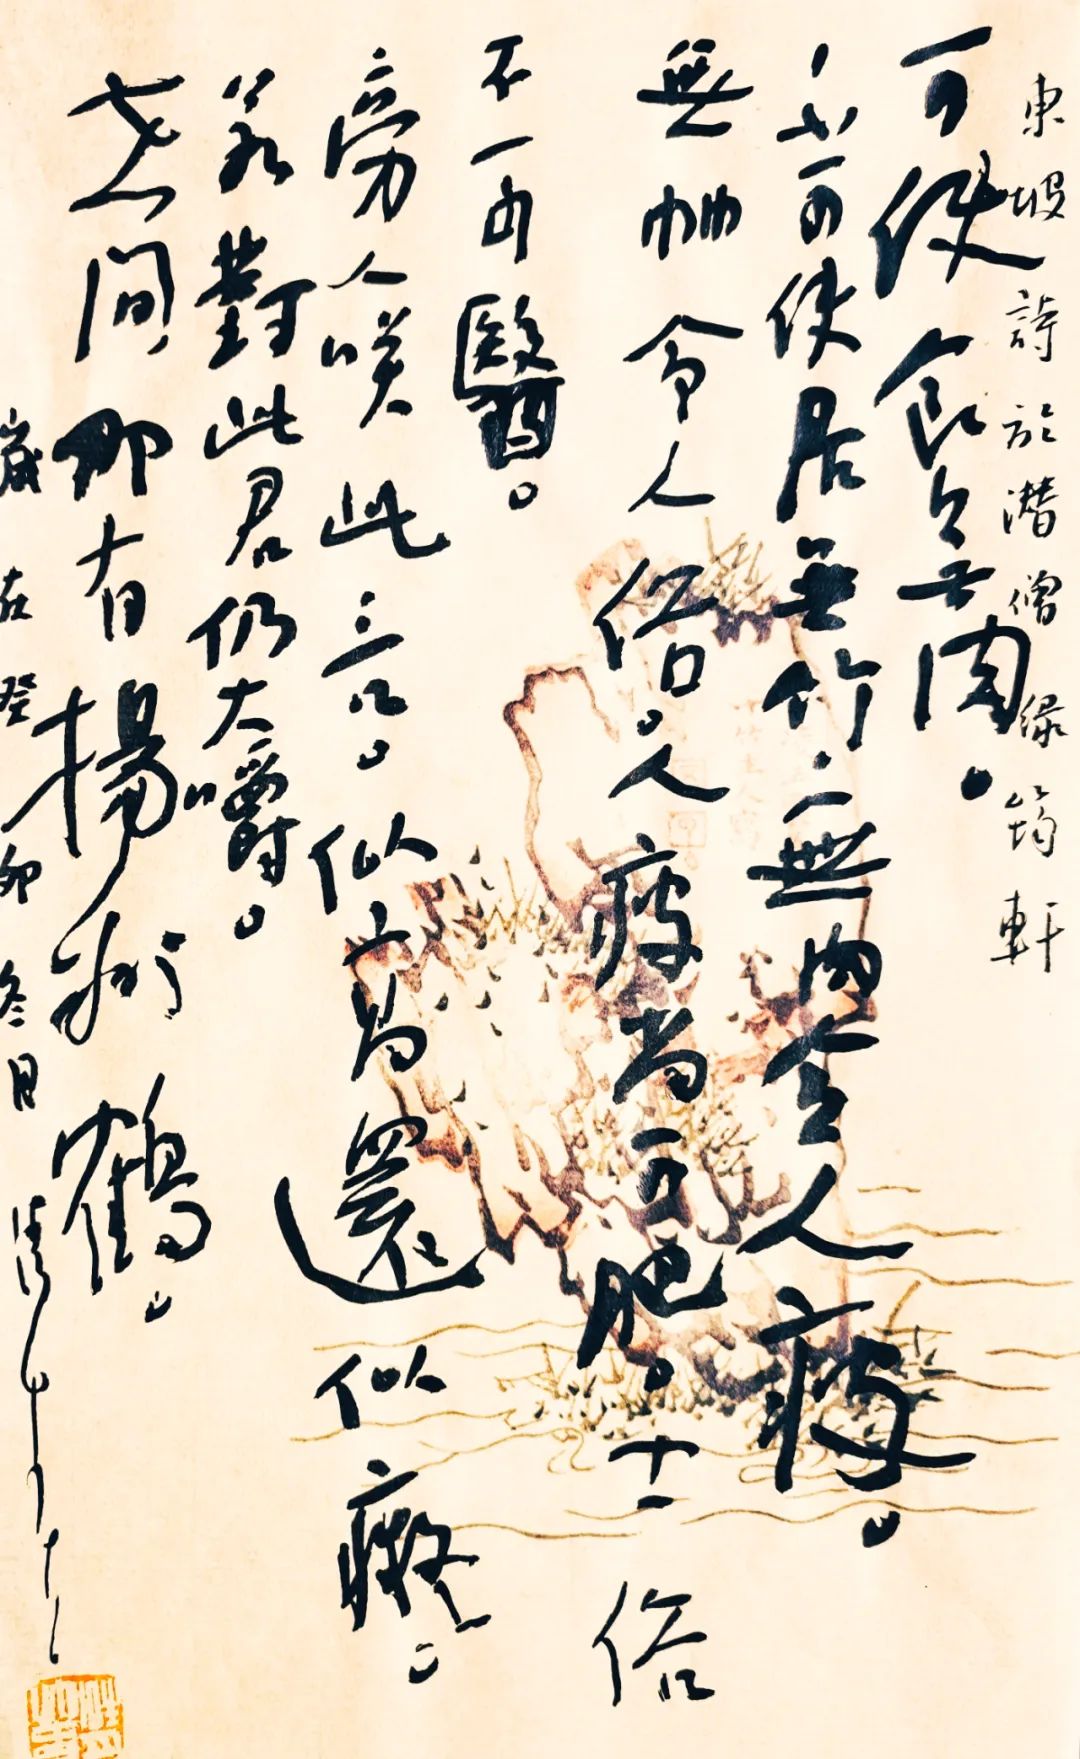 東坡詩於潛僧綠筠軒
可使食無肉。
不可使居無竹。無肉令人瘦。
無竹令人俗。人瘦尚可肥。士俗
不可醫。
旁人笑此言。似高還似癡。
若對此君仍大嚼。
世間那有揚州鶴。
歲在癸卯冬日